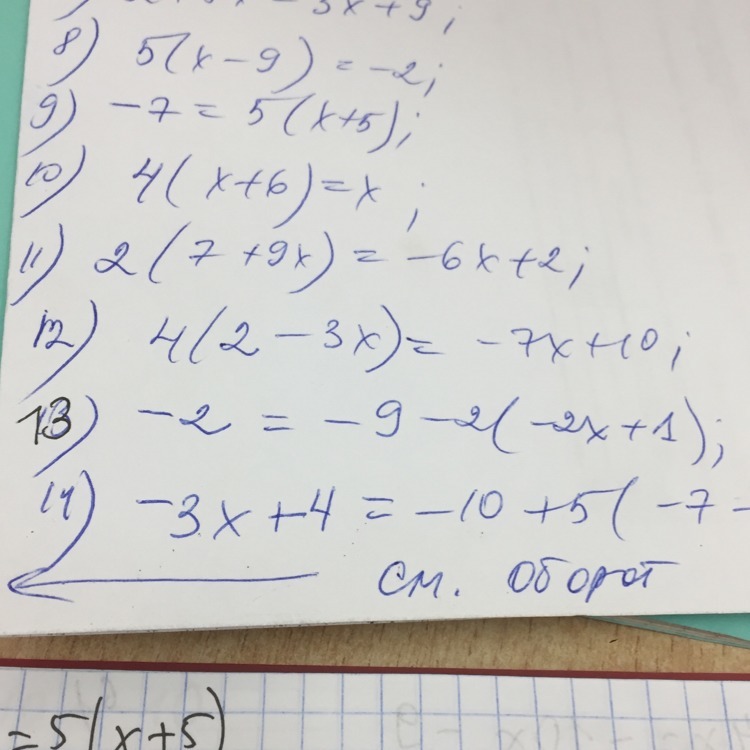 3x+9;
8) 5(x-9)=-2;
9) -7=5(x+5);
10) 4(x+6)=x;
11) 2(7+9x)=-6x+2;
12) 4(2-3x)=-7x+10;
13) -2=-9-2(-2x+1);
14) -3x+4=-10+5(-7-
см. оборот
=5(x+5)